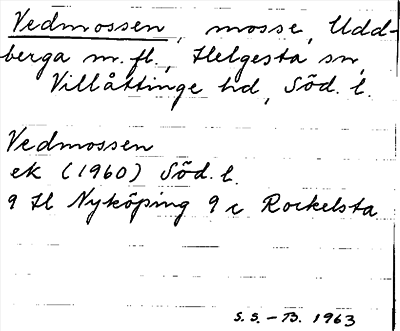 Vedmossen, mosse, Udd-
berga m.fl., Helgesta sn,
Villåttinge hd, Söd. l.
Vedmossen
ek (1960) Söd. l.
9 H Nyköping 9 c Rockelsta
S.S.-B. 1963